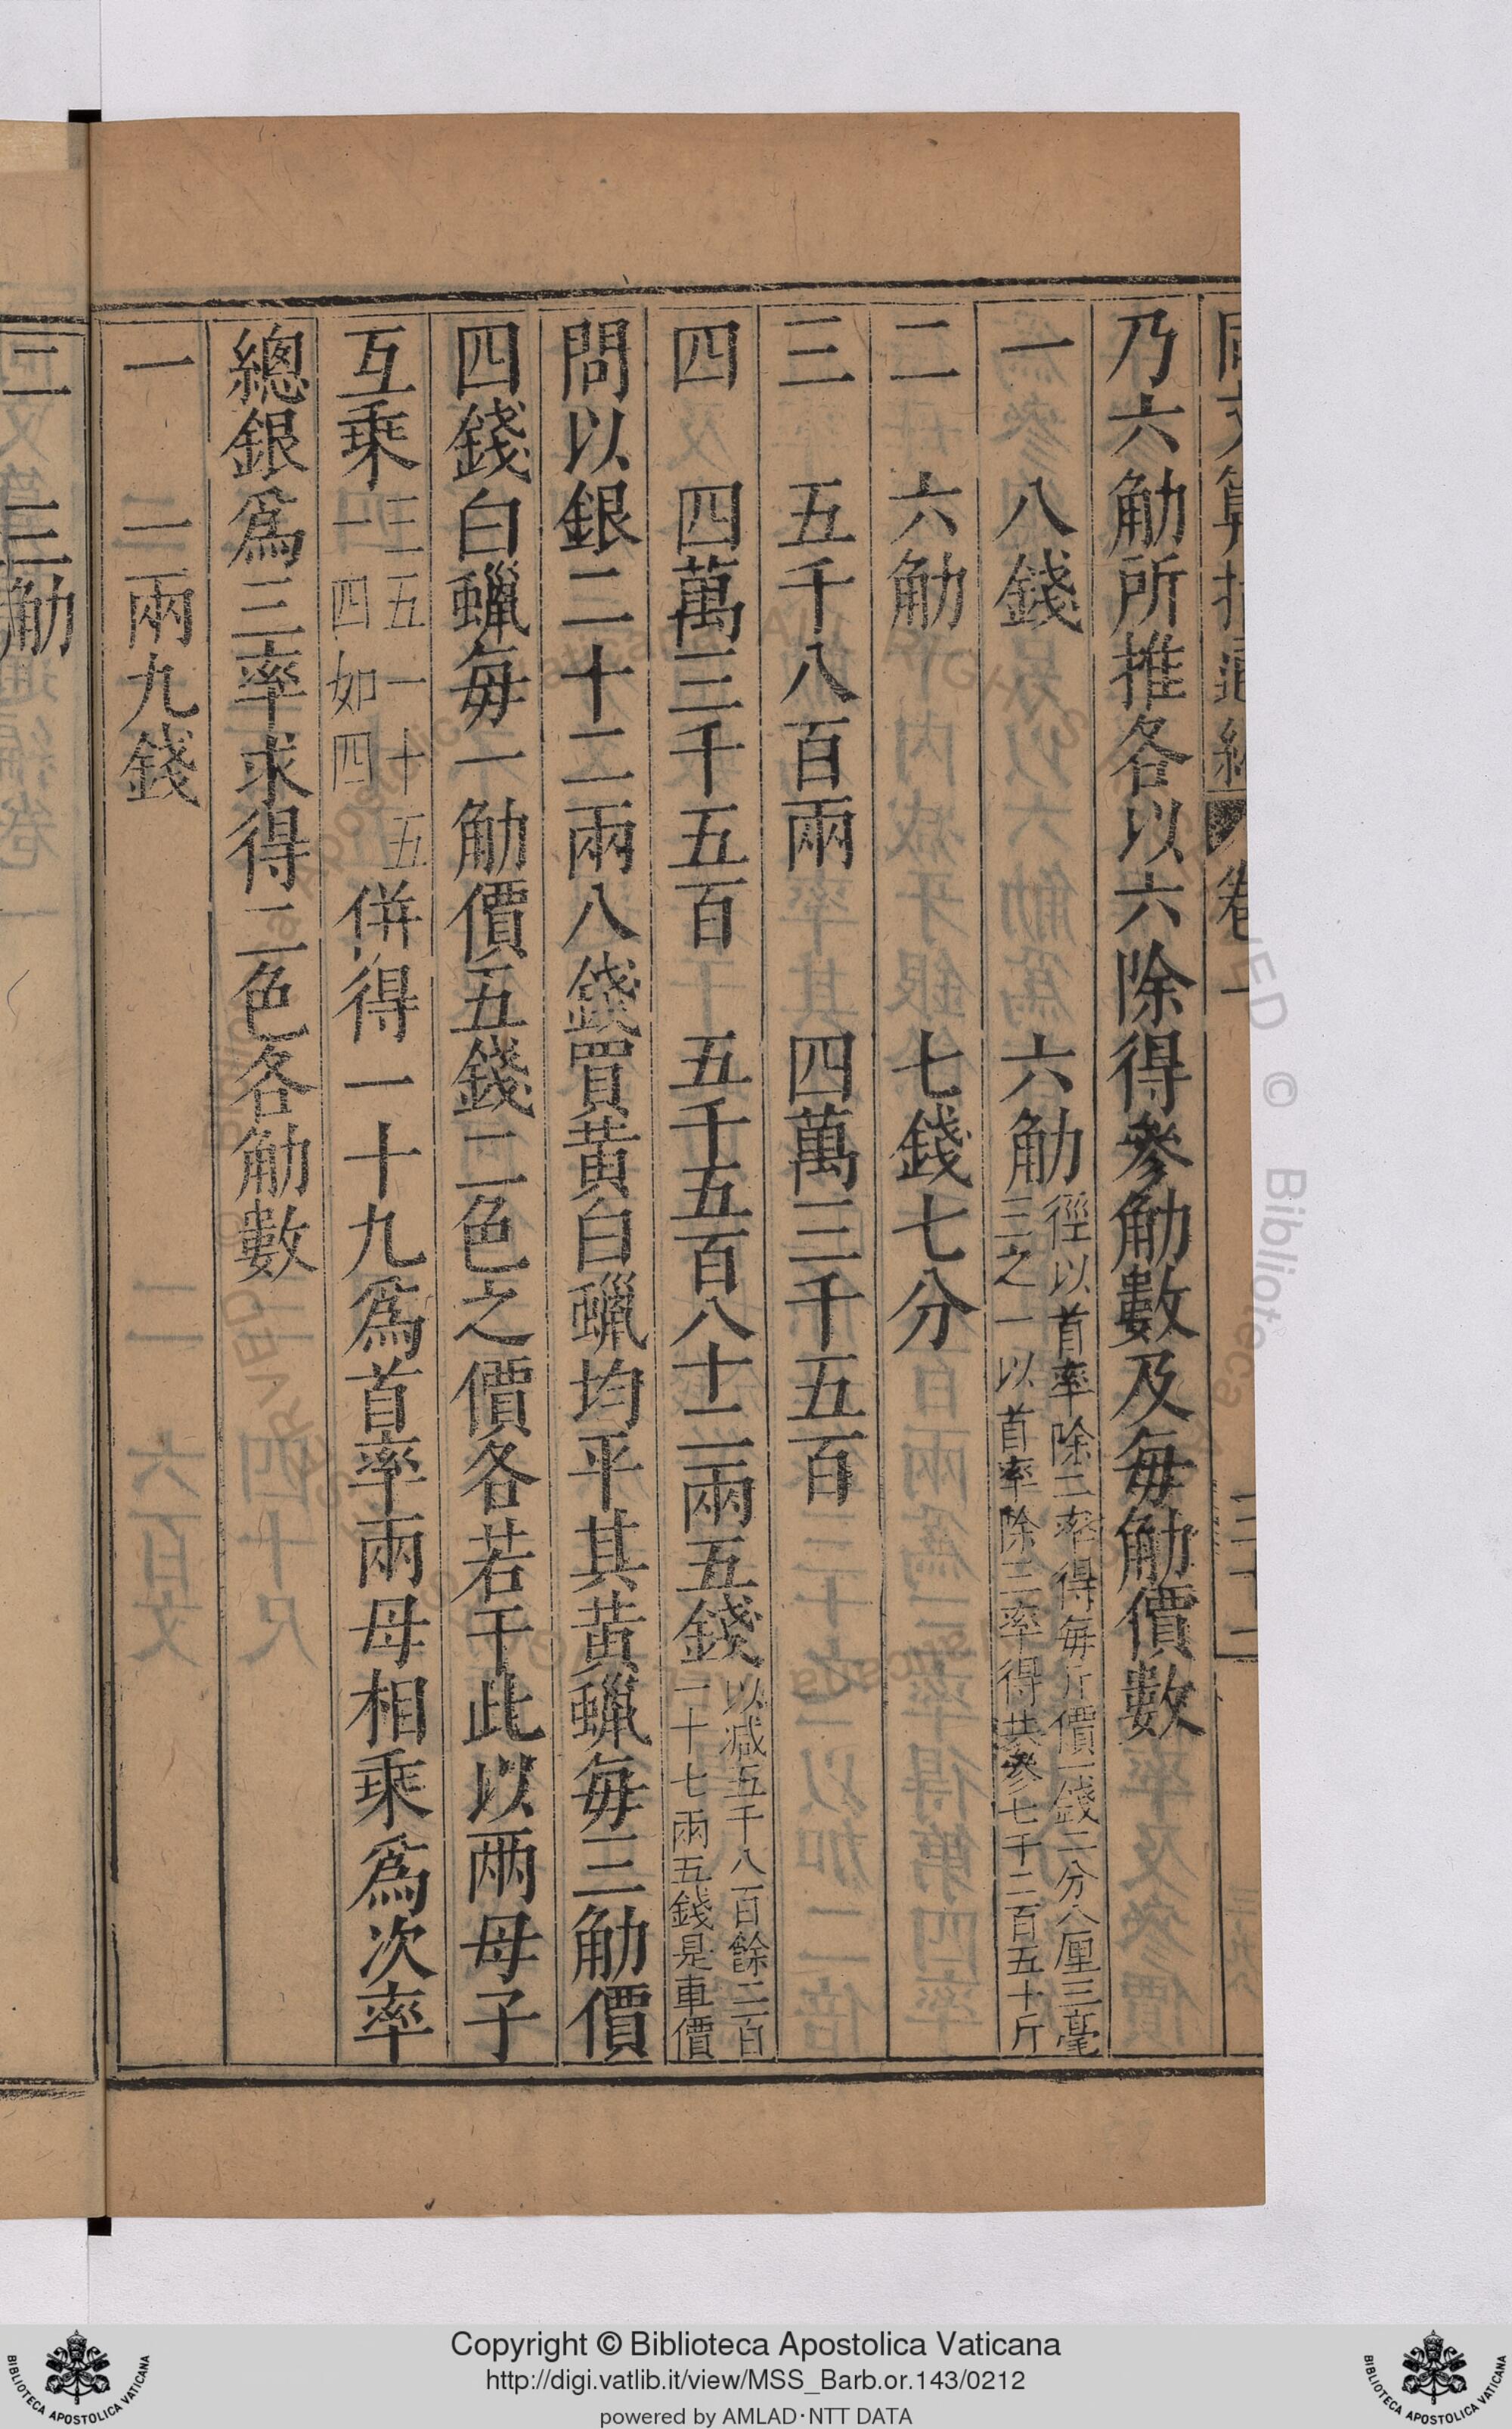 乃六觔所推各以六除得參觔數及每觔價數
一　八錢　六觔徑以首率除二率得每斤價一錢二分八厘三毫三之一以首率除三率得共參七千二百五十斤
二　六觔　七錢七分
三　五千八百兩　四萬三千五百
四　四萬三千五百　五千五百八十二兩五錢以減五千八百餘二百一十七兩五錢是車價
問以銀二十二兩八錢買黃白蠟均平其黃蠟每三觔價
四錢白蠟每一觔價五錢二色之價各若干此以兩母子
互乘三五一十五一四如四併得一十九爲首率兩母相乘爲次率
總銀爲三率求得二色各觔數
一　二兩九錢
二　三觔
Copyright © Biblioteca Apostolica Vaticana
http://digi.vatlib.it/view/MSS_Barb.or.143/0212
powered by AMLAD·NTT DATA
BIBLIOTECA APOSTOLICA VATICANA
BIBLIOTECA APOSTOLICA VATICANA